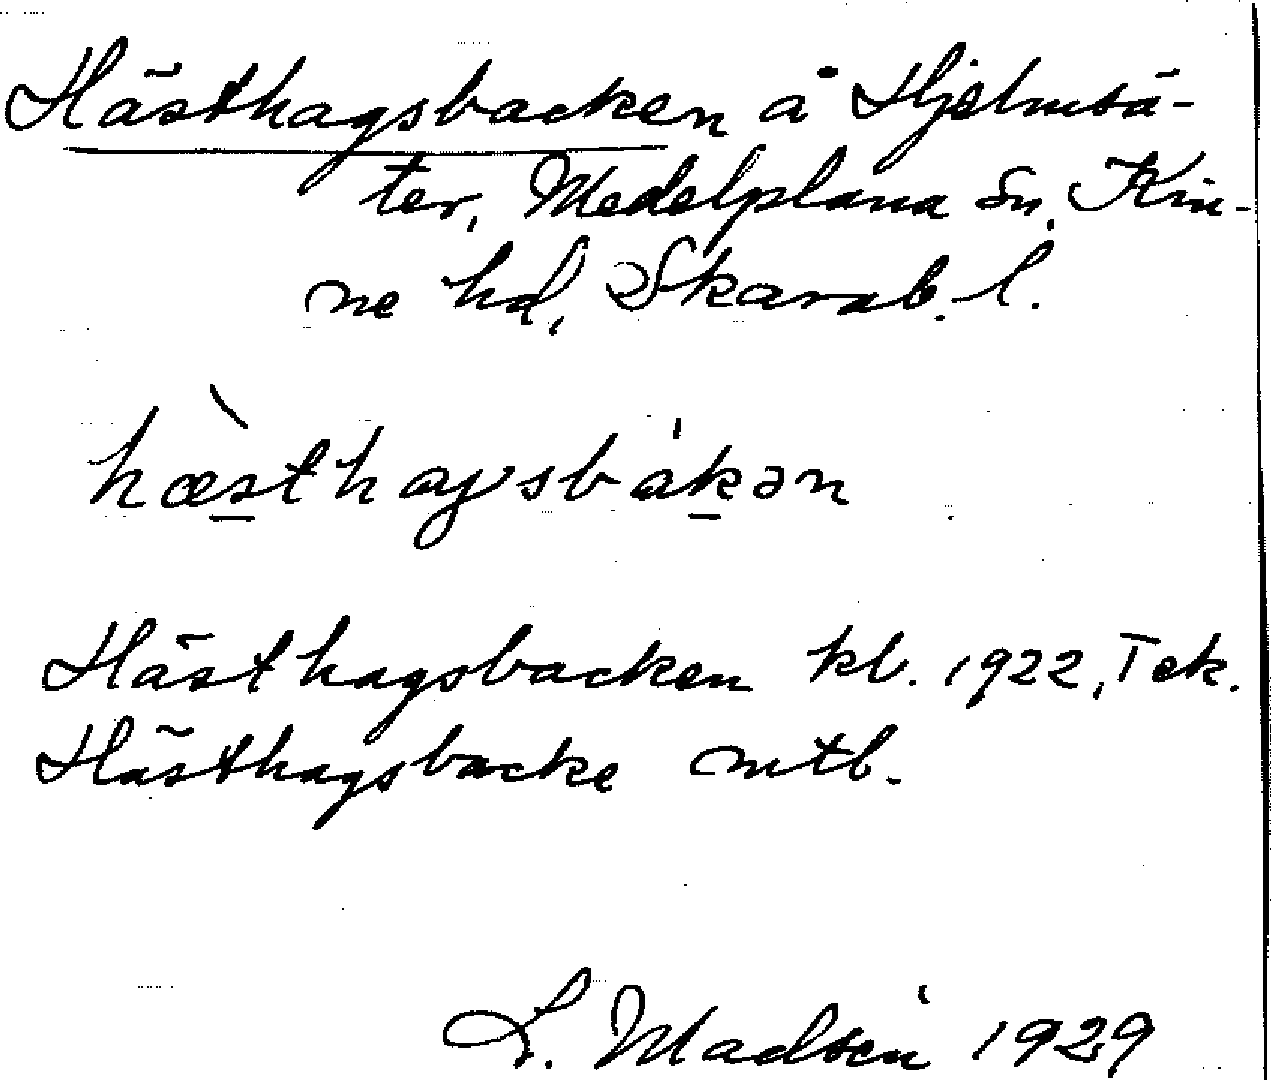 Hästhagsbacken å Hjelmsä-
ter, Medelplana Sn, Kin-
ne hd, Skarab. l.
hæ̀sthagsbákən
Hästhagsbacken kb. 1922, Tek.
Hästhagsbacke mtb.
L. Madsén 1929